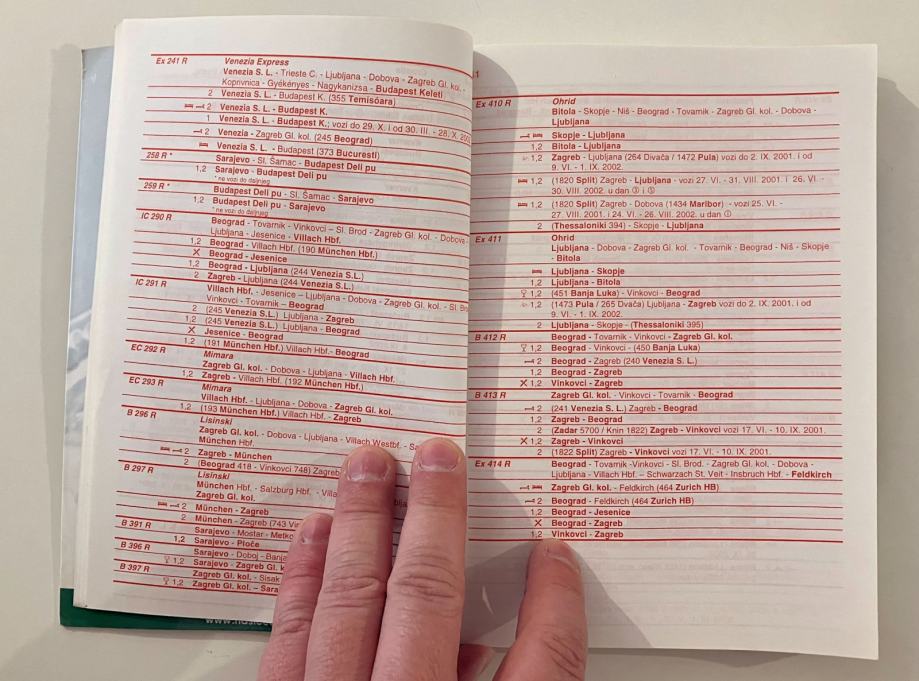 Ex 241 R Venezia Express
Venezia S. L. - Trieste C. - Ljubljana - Dobova - Zagreb Gl. kol. -
Koprivnica - Gyékényes - Nagykanizsa - Budapest Keleti
2 Venezia S. L. - Budapest K. (355 Temisoara)
2 Venezia S. L. - Budapest K.
1 Venezia S. L. - Budapest K.; vozi do 29. X. i od 30. III. - 28. X. 2002.
2 Venezia - Zagreb Gl. kol. (245 Beograd)
Venezia S. L. - Budapest (373 Bucuresti)
258 R * Sarajevo - Sl. Šamac - Budapest Deli pu
1,2 Sarajevo - Budapest Deli pu
* ne vozi do daljnjeg
259 R * Budapest Deli pu - Sl. Šamac - Sarajevo
1,2 Budapest Deli pu - Sarajevo
* ne vozi do daljnjeg
IC 290 R Beograd - Tovarnik - Vinkovci – Sl. Brod - Zagreb Gl. kol. - Dobova -
Ljubljana - Jesenice - Villach Hbf.
1,2 Beograd - Villach Hbf. (190 München Hbf.)
Beograd - Jesenice
1,2 Beograd - Ljubljana (244 Venezia S.L.)
2 Zagreb - Ljubljana (244 Venezia S.L.)
IC 291 R Villach Hbf. - Jesenice – Ljubljana - Dobova - Zagreb Gl. kol. - Sl. Bro
Vinkovci - Tovarnik – Beograd
2 (245 Venezia S.L.) Ljubljana - Zagreb
1,2 (245 Venezia S.L.) Ljubljana - Beograd
Jesenice - Beograd
1,2 (191 München Hbf.) Villach Hbf.- Beograd
EC 292 R Mimara
Zagreb Gl. kol. - Dobova - Ljubljana - Villach Hbf.
1,2 Zagreb - Villach Hbf. (192 München Hbf.)
EC 293 R Mimara
Villach Hbf. - Ljubljana - Dobova - Zagreb Gl. kol.
1,2 (193 München Hbf.) Villach Hbf. - Zagreb
B 296 R Lisinski
Zagreb Gl. kol. - Dobova - Ljubljana - Villach Westbf. - Sa
München Hbf.
2 Zagreb - München
2 (Beograd 418 - Vinkovci 748) Zagreb
B 297 R Lisinski
München Hbf. - Salzburg Hbf. - Villa
Zagreb Gl. kol.
2 München - Zagreb
2 München - Zagreb (743 Vi
B 391 R Sarajevo - Mostar - Metko
1,2 Sarajevo - Ploče
B 396 R Sarajevo - Doboj - Banja
1,2 Sarajevo - Zagreb Gl. k
B 397 R Zagreb Gl. kol. - Sisak
1,2 Zagreb Gl. kol. – Sara
1
Ex 410 R Ohrid
Bitola - Skopje - Niš - Beograd - Tovarnik - Zagreb Gl. kol. - Dobova -
Ljubljana
Skopje - Ljubljana
1,2 Bitola - Ljubljana
1,2 Zagreb - Ljubljana (264 Divača / 1472 Pula) vozi do 2. IX. 2001. i od
9. VI. - 1. IX. 2002.
1,2 (1820 Split) Zagreb - Ljubljana - vozi 27. VI. - 31. VIII. 2001. i 26. VI. -
30. VIII. 2002. u dan ③ i ⑤
1,2 (1820 Split) Zagreb - Dobova (1434 Maribor) - vozi 25. VI. -
27. VIII. 2001. i 24. VI. - 26. VIII. 2002. u dan ①
2 (Thessaloniki 394) - Skopje - Ljubljana
Ex 411 Ohrid
Ljubljana - Dobova - Zagreb Gl. kol. - Tovarnik - Beograd - Niš - Skopje
- Bitola
Ljubljana - Skopje
1,2 Ljubljana - Bitola
1,2 (451 Banja Luka) - Vinkovci - Beograd
1,2 (1473 Pula / 265 Divača) Ljubljana - Zagreb vozi do 2. IX. 2001. i od
9. VI. - 1. IX. 2002.
2 Ljubljana - Skopje - (Thessaloniki 395)
B 412 R Beograd - Tovarnik - Vinkovci - Zagreb Gl. kol.
1,2 Beograd - Vinkovci - (450 Banja Luka)
2 Beograd - Zagreb (240 Venezia S. L.)
1,2 Beograd - Zagreb
1,2 Vinkovci - Zagreb
B 413 R Zagreb Gl. kol. - Vinkovci - Tovarnik - Beograd
2 (241 Venezia S.L.) Zagreb - Beograd
1,2 Zagreb - Beograd
2 (Zadar 5700 / Knin 1822) Zagreb - Vinkovci vozi 17. VI. - 10. IX. 2001.
1,2 Zagreb - Vinkovci
2 (1822 Split) Zagreb - Vinkovci vozi 17. VI. - 10. IX. 2001.
Ex 414 R Beograd - Tovarnik -Vinkovci - Sl. Brod. - Zagreb Gl. kol. - Dobova -
Ljubljana - Villach Hbf. – Schwarzach St. Veit - Insbruch Hbf. - Feldkirch
Zagreb Gl. kol. - Feldkirch (464 Zurich HB)
2 Beograd - Feldkirch (464 Zurich HB)
1,2 Beograd - Jesenice
Beograd - Zagreb
1,2 Vinkovci - Zagreb